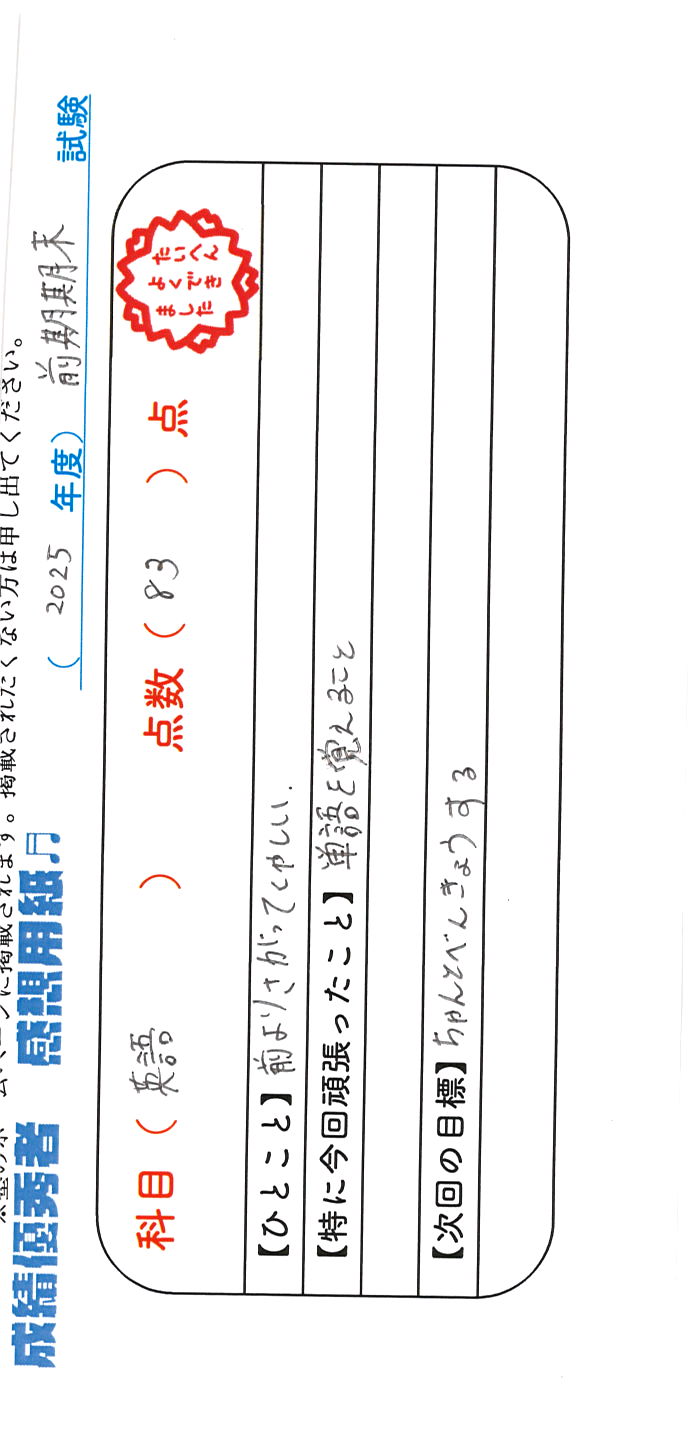 に掲載されます。掲載されたくない方は申し出てください。
成績優秀者 感想用紙♬ ( 2025 年度) 前期期末 試験
科目 ( 英語 ) 点数 ( 83 ) 点
たいへん
よくでき
ました
【ひとこと】前よりさがってくやしい.
【特に今回頑張ったこと】単語を覚えること
【次回の目標】ちゃんとべんきょうする